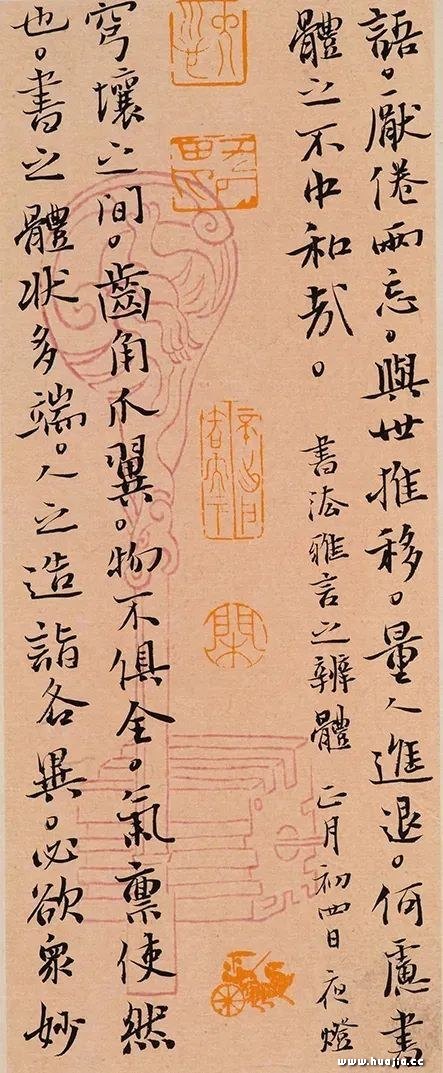 語。厭倦兩忘。與世推移。量人進退。何慮書
體之不中和哉。書法雅言之辨體 正月初四日夜燈
穹壤之间。齒角爪翼。物不俱全。氣禀使然
也。書之體狀多端。人之造詣各異。必欲衆妙
www.huajia.cc